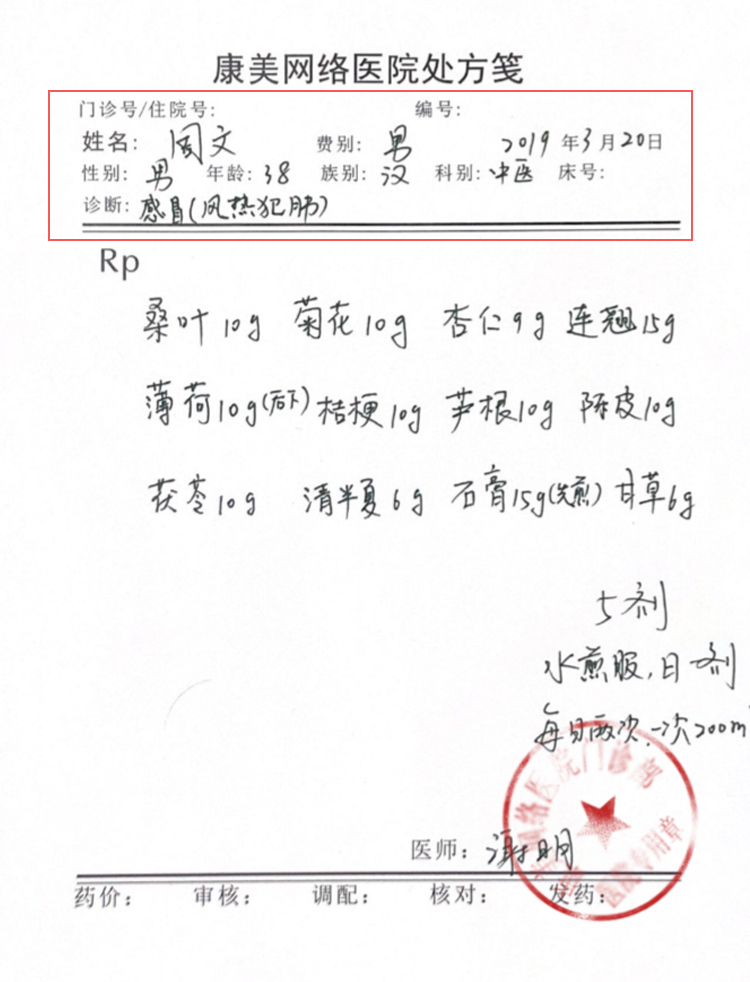 康美网络医院处方笺
门诊号/住院号: 编号:
姓名: 周文 费别: 男 2019 年 3 月 20 日
性别: 男 年龄: 38 族别: 汉 科别: 中医 床号:
诊断: 感冒(风热犯肺)
Rp
桑叶10g 菊花10g 杏仁9g 连翘15g
薄荷10g(后下) 桔梗10g 芦根10g 陈皮10g
茯苓10g 清半夏6g 石膏15g(先煎) 甘草6g
5剂
水煎服,日一剂
每日两次,一次200m
网络医院门诊部
医院专用章
医师: 谢明
药价: 审核: 调配: 核对: 发药: